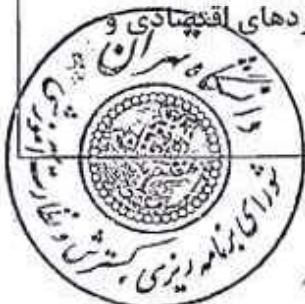 ردهای اقتصادی و
دانشگاه تهران
شورای برنامه ریزی گسترش و نظارت آموزشی